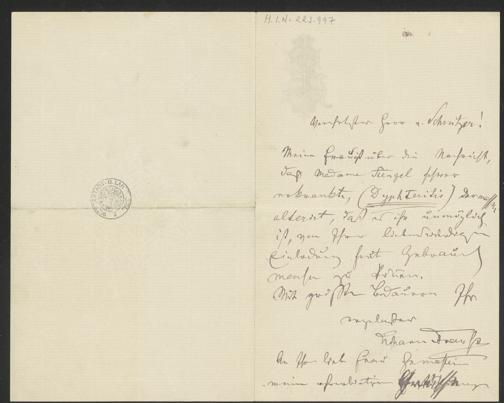 H.I.N. 223.997
Verehrtester Herr v. Schnitzer!
Meine Frau ist über die Nachricht,
daß Madame Stengel schwer
erkrankte, (Dyphteritis) dermaßen
alterirt, daß es ihr unmöglich
ist, von Ihrer liebenswürdigen
Einladung heut Gebrauch
machen zu können.
Mit größtem Bedauern Ihr
ergebenster
Johann Strauss
An Ihre liebe Frau Gemahlin
meine